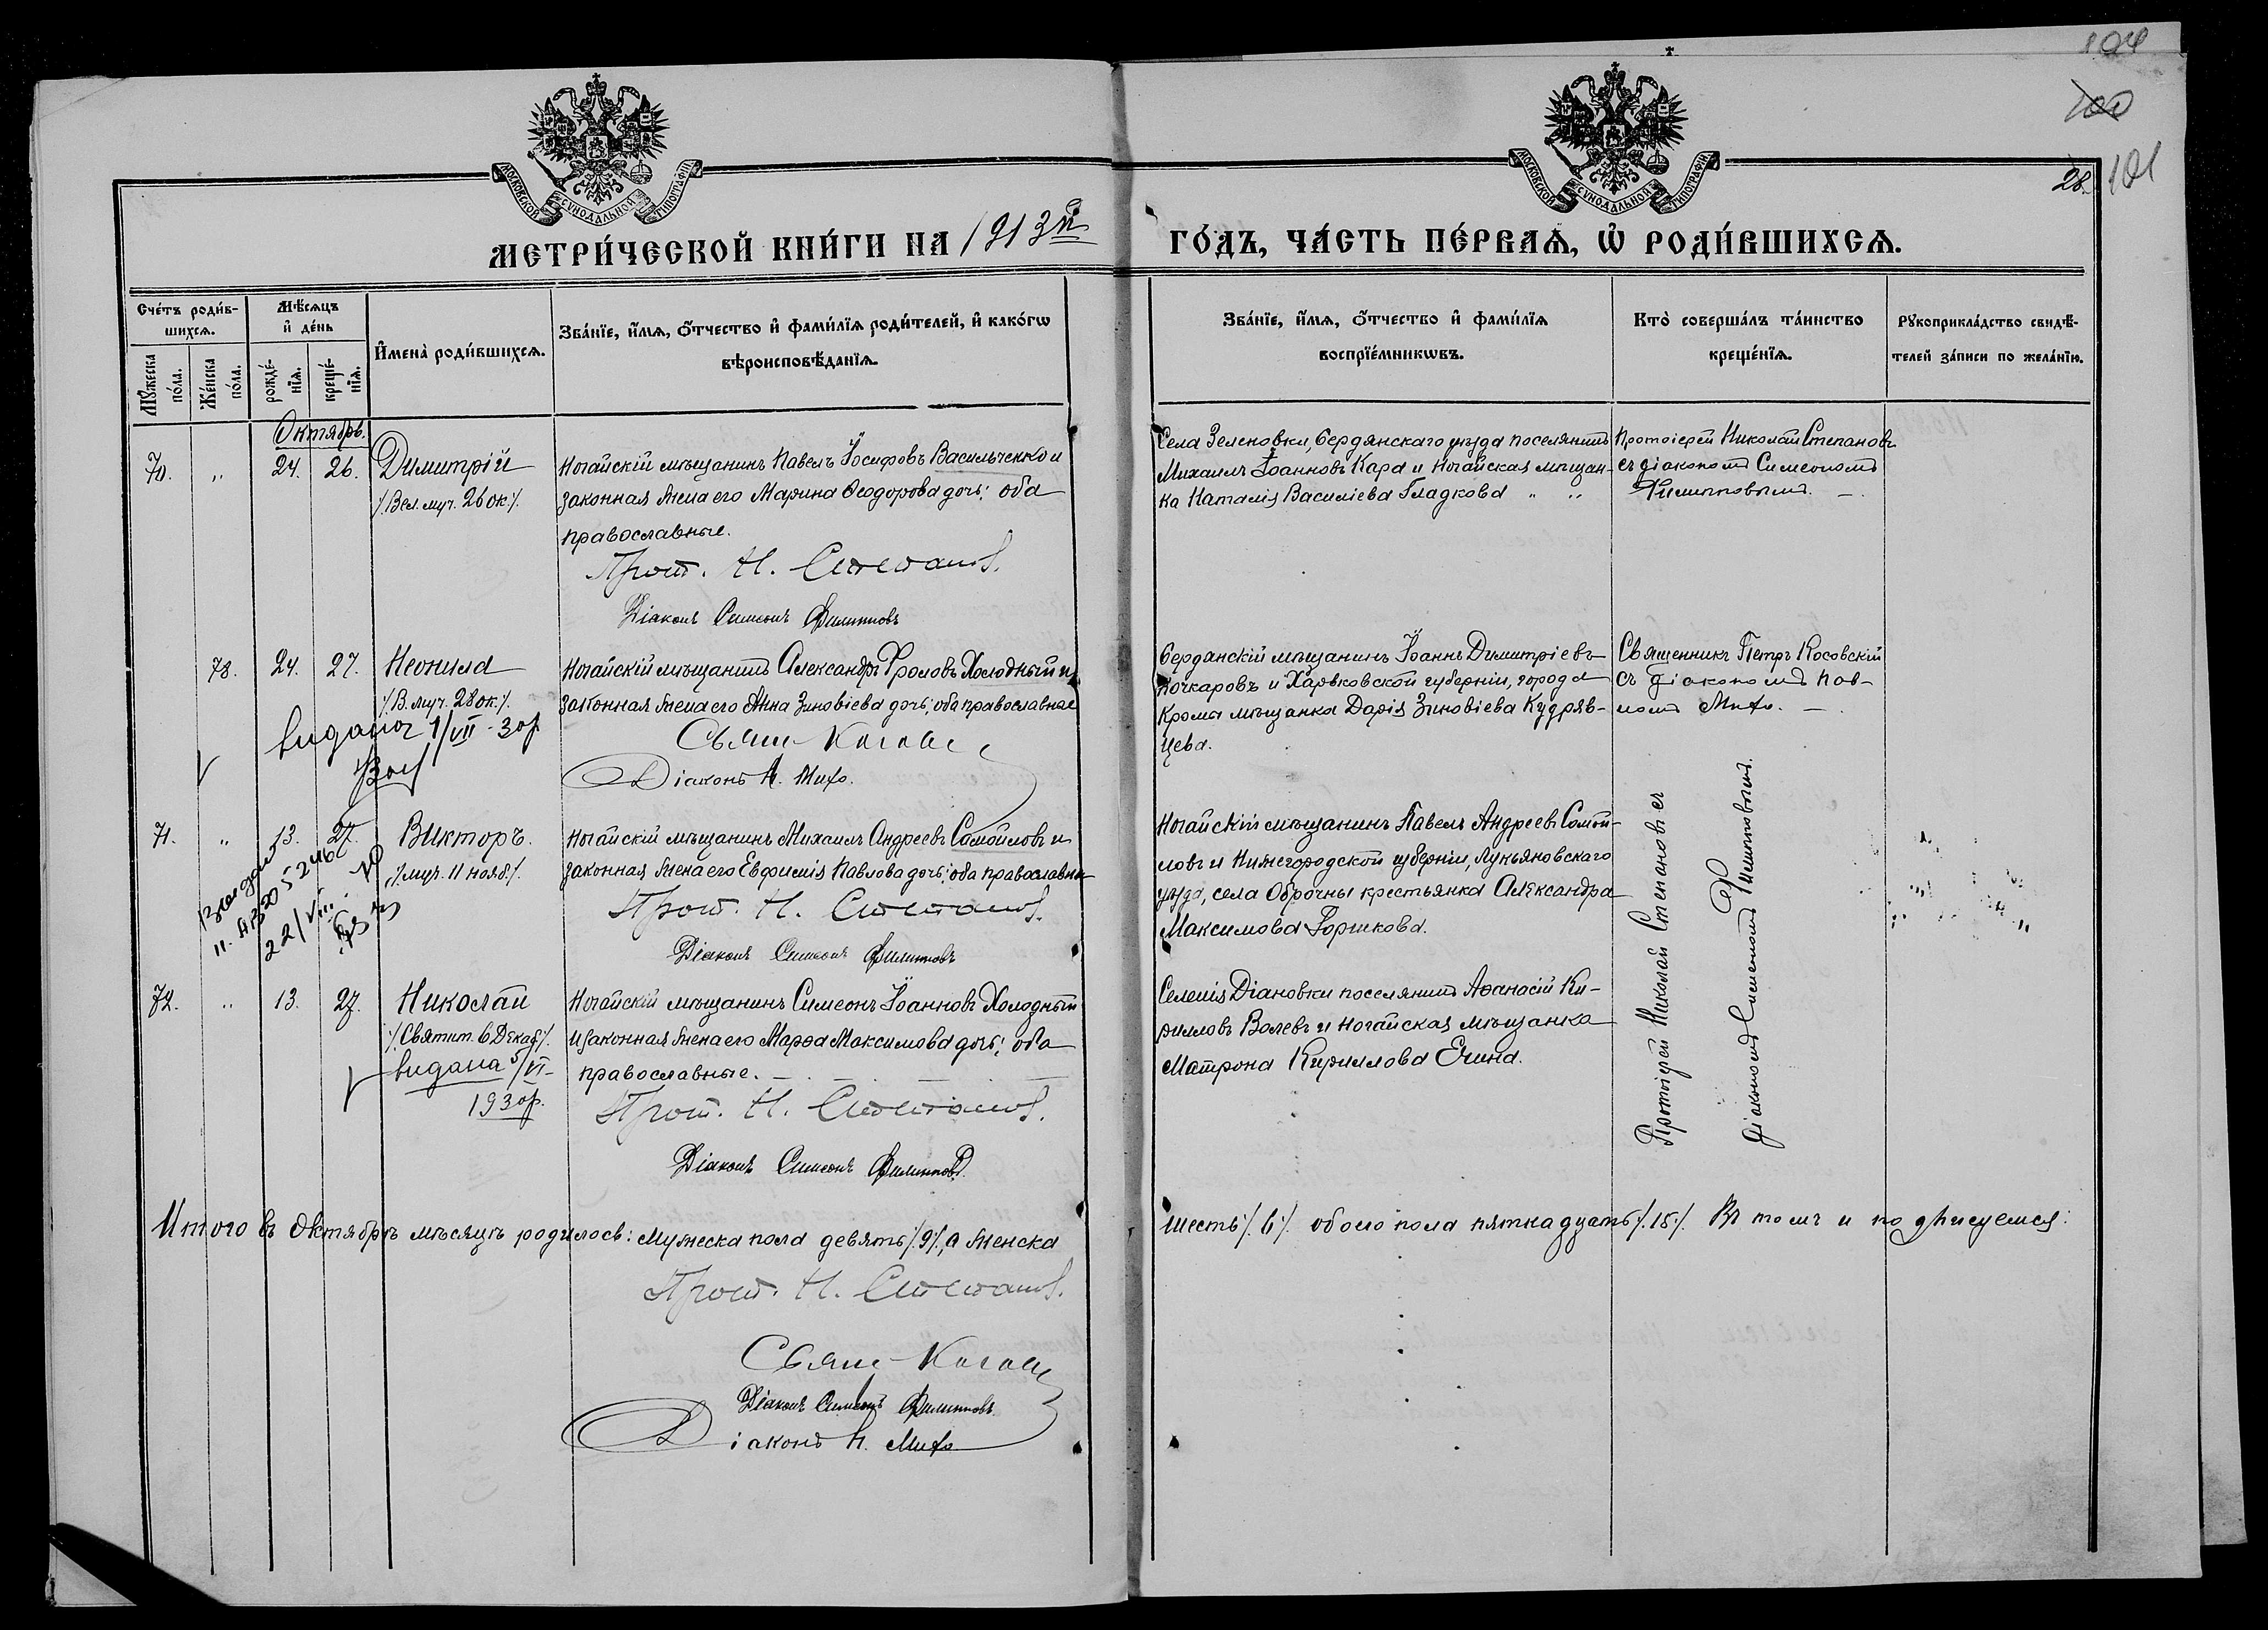 104
100
101
28.
МОСКОВСКОЙ СѴНОДАЛЬНОЙ ТИПОГРАФІИ
МОСКОВСКОЙ СѴНОДАЛЬНОЙ ТИПОГРАФІИ
МЕТРИ́ЧЕСКОЙ КНИ́ГИ НА 1913й
ГО́ДЪ, ЧА́СТЬ ПЕ́РВАѦ, Ѡ РОДИ́ВШИХСѦ.
Сче́тъ роди́в-
шихсѧ.
Мꙋжеска по́ла.
Же́нска по́ла.
Мѣ́сѧцъ
и҆ де́нь
рожде́-
нїѧ.
креще́-
нїѧ.
И҆мена̀ роди́вшихсѧ.
Зва́нїе, и҆́мѧ, ѻ҆́тчество и҆ фами́лїѧ роди́телей, и҆ како́гѡ
вѣроисповѣ́данїѧ.
Зва́нїе, и҆́мѧ, ѻ҆́тчество и҆ фами́лїѧ
воспрїе́мникѡвъ.
Кто̀ соверша́лъ та́инство
креще́нїѧ.
Рꙋкоприкла́дство свидѣ́-
телей за́писи по жела́нїю.
Октябрь.
70. „ 24. 26. Димитрій
/.Вел. муч. 26 ок./.
Ногайскій мѣщанинъ Павелъ Іосифовъ Васильченко и
законная жена его Марина Ѳеодорова дочь; оба
православные.
Прот. Н. Степановъ.
Діаконъ Симеонъ Филипповъ
Села Зеленовки, Бердянскаго уѣзда поселянинъ
Михаилъ Іоанновъ Кара и Ногайская мѣщан-
ка Наталія Василіева Гладкова „ „
Протоіерей Николай Степановъ
съ діакономъ Симеономъ
Филипповымъ. —.
78. 24. 27. Неонилла
/.В. муч. 28 ок./.
видано 1/VII - 30 р.
Ногайскій мѣщанинъ Александръ Фроловъ Холодный и
законная жена его Анна Зиновіева дочь; оба православные
Свящ. Косовскій
Діаконъ П. Михо.
Бердянскій мѣщанинъ Іоаннъ Димитріевъ
Кочкаровъ и Харьковской губерніи, города
Кромы мѣщанка Дарія Зиновіева Кудряв-
цева.
Священникъ Петръ Косовскій
съ діакономъ Пав-
ломъ Михо. —.
71. „ 13. 27. Викторъ.
/.муч. 11 нояб./.
22/VIII
Ногайскій мѣщанинъ Михаилъ Андреевъ Самойловъ и
законная жена его Евфимія Павлова дочь; оба православны
Прот. Н. Степановъ.
Діаконъ Симеонъ Филипповъ
Ногайскій мѣщанинъ Павелъ Андреевъ Самой-
ловъ и Нижегородской губерніи, Лукьяновскаго
уѣзда, села Оброчны крестьянка Александра
Максимова Горшкова.
Протоіерей Николай Степановъ съ
діакономъ Симеономъ Филипповымъ.
72. „ 13. 27. Николай
/.Святит. 6 Декаб./.
видана 5/VI-
1930р.
Ногайскій мѣщанинъ Симеонъ Іоанновъ Холодный
и законная жена его Марѳа Максимова дочь; оба
православные. —
Прот. Н. Степановъ.
Діаконъ Симеонъ Филипповъ.
Селенія Діановки поселянинъ Аѳанасій Ки-
рилловъ Волевъ и ногайская мѣщанка
Матрона Кириллова Ечина.
Итого въ Октябрѣ мѣсяцѣ родилось: мужеска пола девять /.9/., а женска
шесть /.6/. обоего пола пятнадцать /.15/. Въ томъ и подписуемся:
Прот. Н. Степановъ.
Свящ. Косовскій
Діаконъ Симеонъ Филипповъ.
Діаконъ П. Михо